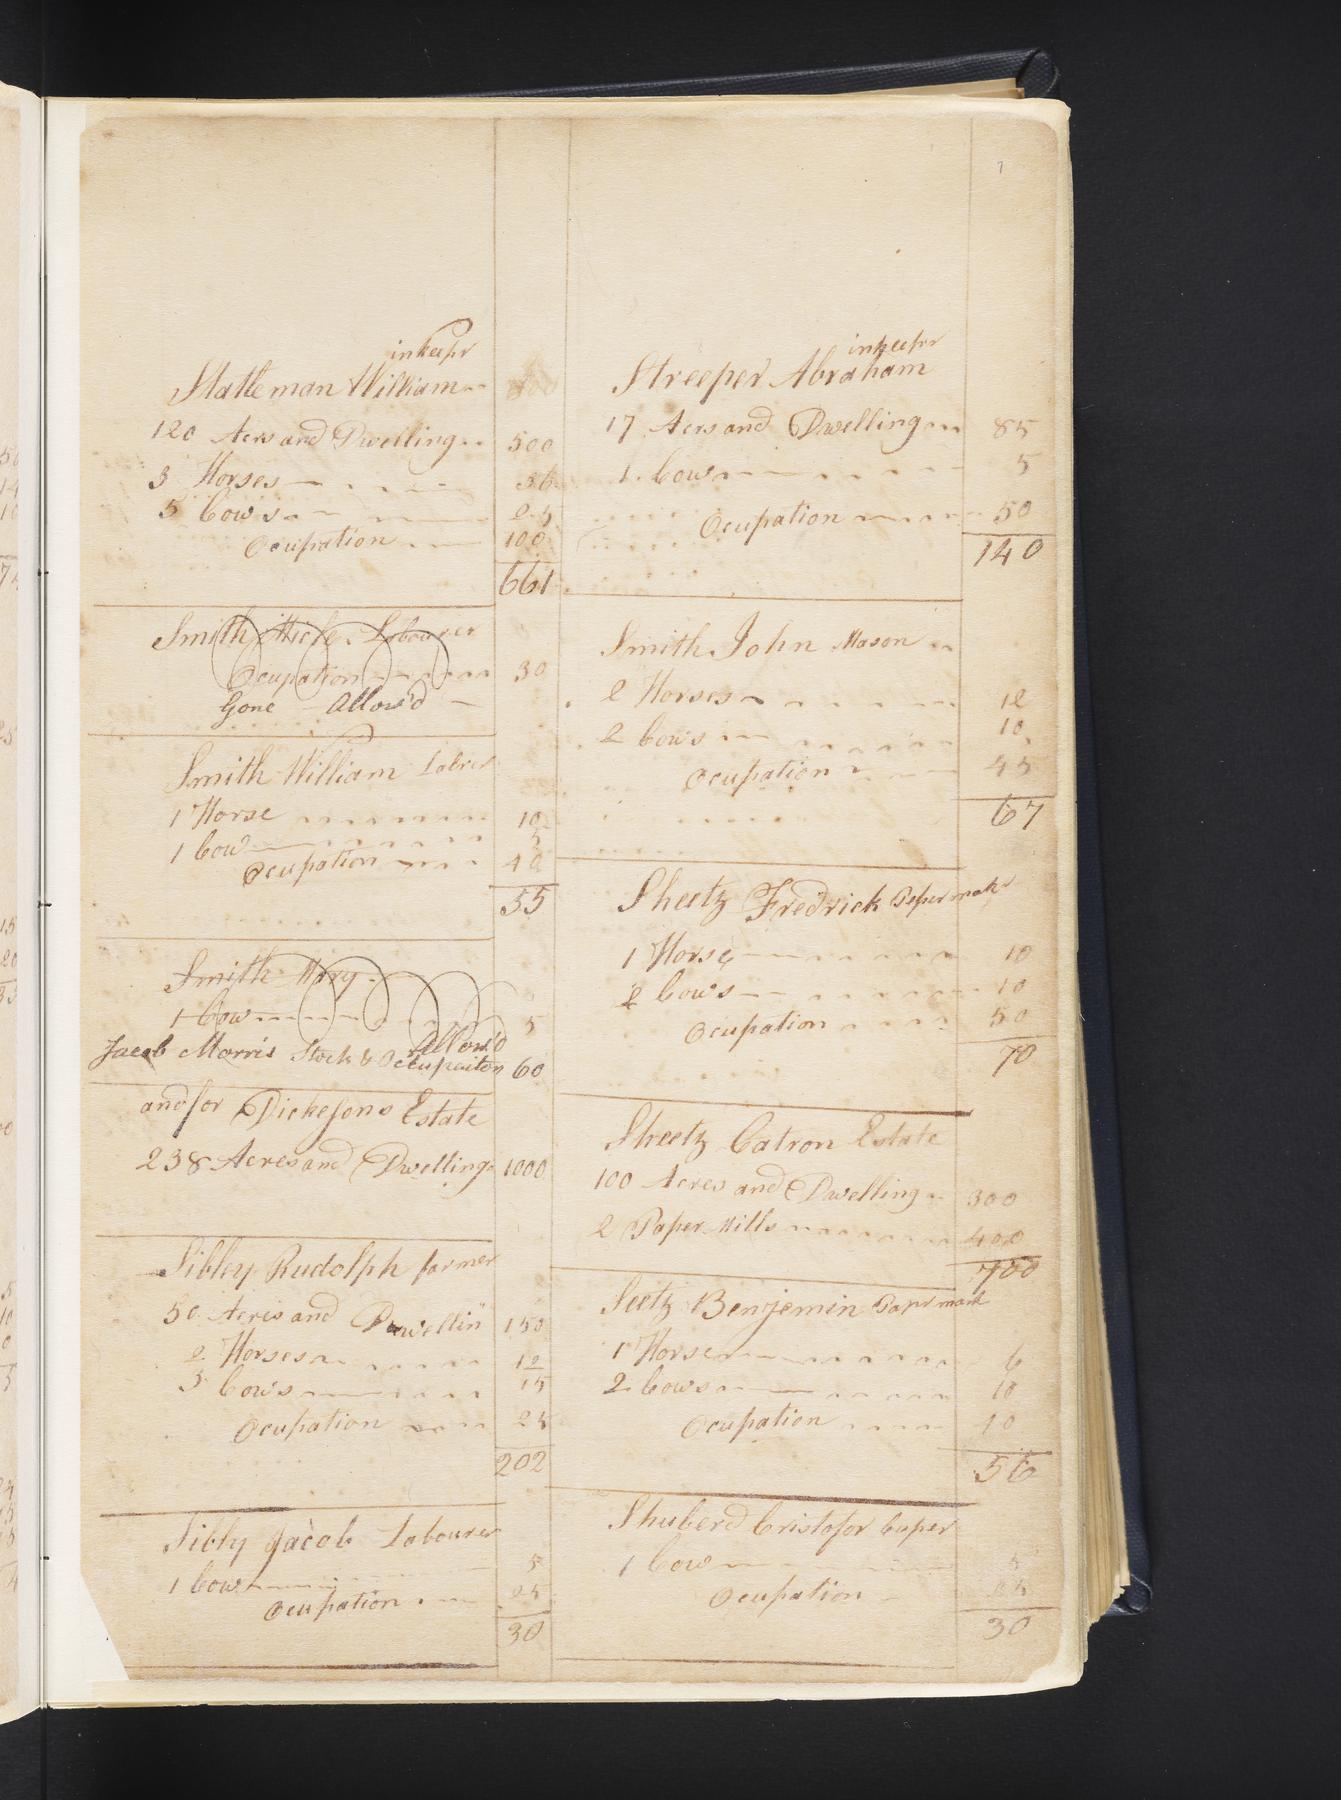 7
inkeepr
Statleman William
120 Acrs and Dwelling 500
3 Horses 36
5 Cows 25
Ocupation 100
661
Smith Labourer
Ocupation 30
Gone Allow'd
Smith William Labrer
1 Horse 10
1 Cow 5
Ocupation 40
55
Smith Mary
1 Cow 5
Allow'd
Jacob Morris Stock & Occupaiton 60
and for Dickesons Estate
238 Acres and Dwelling 1000
Sibley Rudolph farmer
50 Acris and Dwellin 150
2 Horses 12
3 Cows 15
Ocupation 25
202
Sibly Jacob Labourer
1 Cow 5
Ocupation 25
30
inkeepr
Streeper Abraham
17 Acrs and Dwelling 85
1 Cow 5
Ocupation 50
140
Smith John Mason
2 Horses 12
2 Cows 10
Ocupation 45
67
Sheetz Fredrick Peper makr
1 Horse 10
2 Cows 10
Ocupation 50
70
Sheetz Catron Estate
100 Acres and Dwelling 300
2 Paper Mills 400
700
Seetz Benjemin Papr mak
1 Horse 6
2 Cows 10
Ocupation 40
56
Shuberd Cristofor Cuper
1 Cow 5
Ocupation 25
30